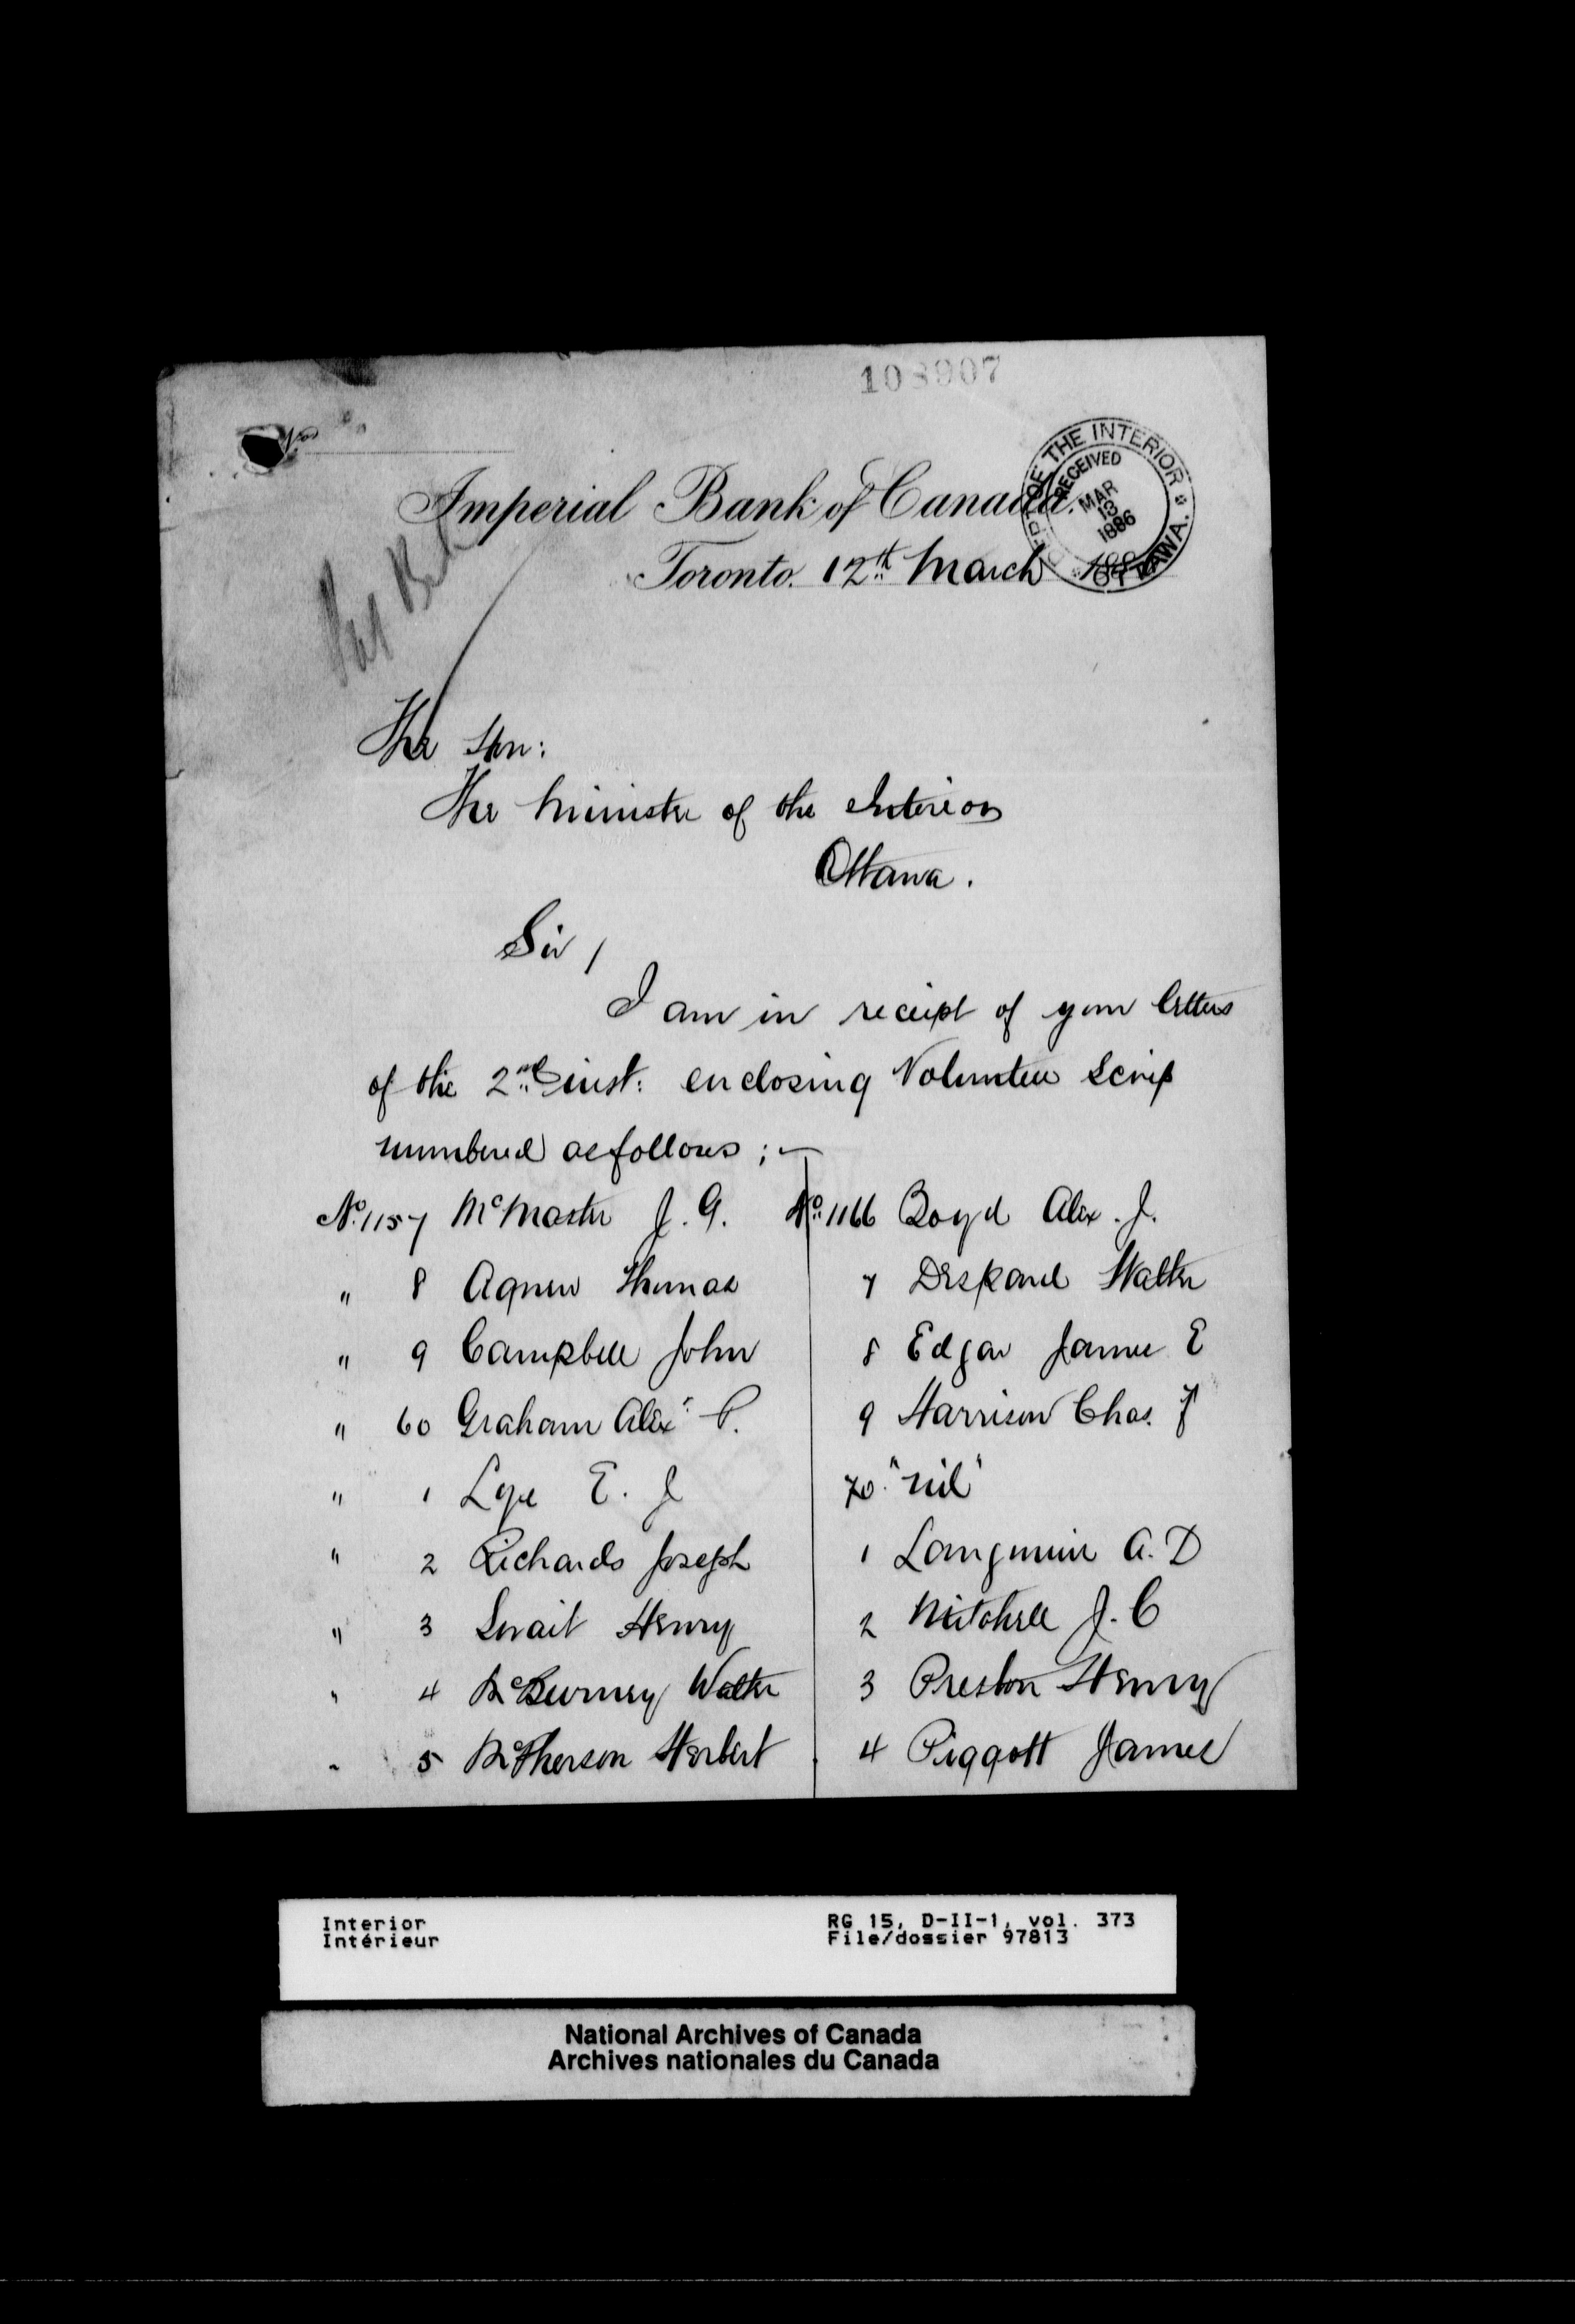 108907
Imperial Bank of Canada.
DEPT OF THE INTERIOR OTTAWA.
RECEIVED
MAR
13
1886
Toronto. 12th March 188
The Hon:
The Minister of the Interior
Ottawa.
Sir,
I am in receipt of your letters
of the 2nd inst: enclosing Volunteer Scrip
numbered as follows;—
No. 1157 McMaster J. G.
" 8 Agnew Thomas
" 9 Campbell John
" 60 Graham Alexr P.
" 1 Lye E. J
" 2 Richards Joseph
" 3 Swait Henry
" 4 McBurney Walter
" 5 McPherson Herbert
No. 1166 Boyd Alex. J.
7 Despard Walter
8 Edgar James E
9 Harrison Chas. F
70 "nil"
1 Langmuir A. D
2 Mitchell J. C
3 Preston Henry
4 Piggott James
Interior
Intérieur
RG 15, D-II-1, vol. 373
File/dossier 97813
National Archives of Canada
Archives nationales du Canada